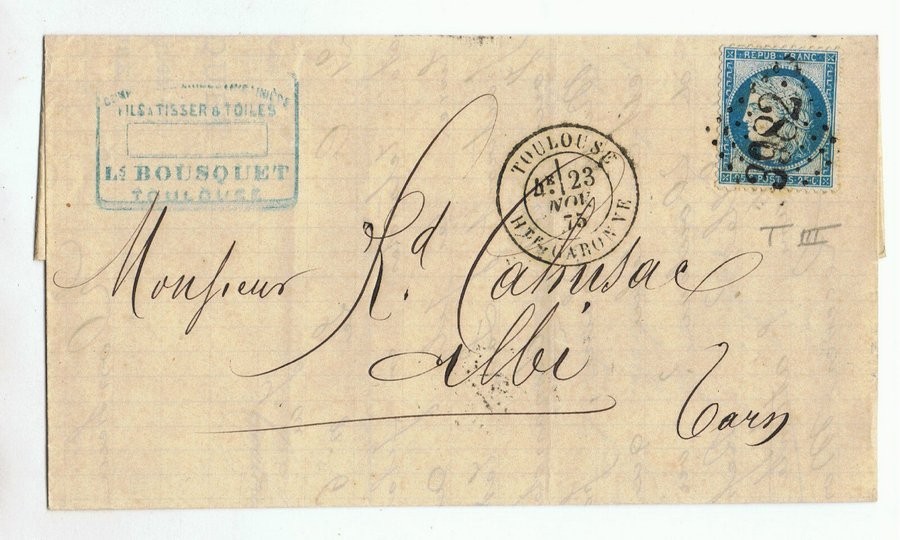 FILS A TISSER & TOILES
Ls BOUSQUET
TOULOUSE
TOULOUSE
4E 23
NOV.
75
HTE GARONNE
REPUB FRANC
POSTES
3982
T III
Monsieur Rd Cahusac
Albi
Tarn